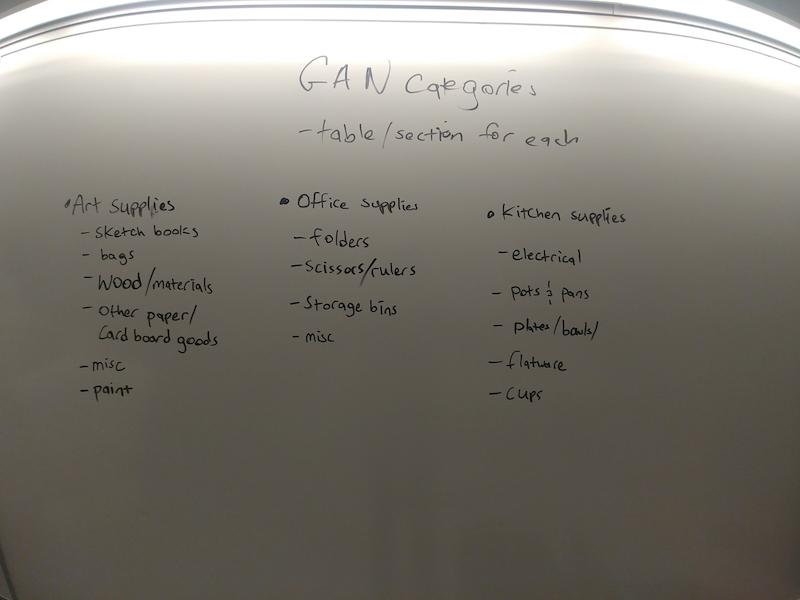 GAN Categories
- table/section for each
• Art supplies
- sketch books
- bags
- Wood/materials
- Other paper/
Card board goods
- misc
- paint
• Office supplies
- folders
- Scissors/rulers
- Storage bins
- misc
• Kitchen supplies
- electrical
- pots & pans
- plates/bowls/
- flatware
- cups